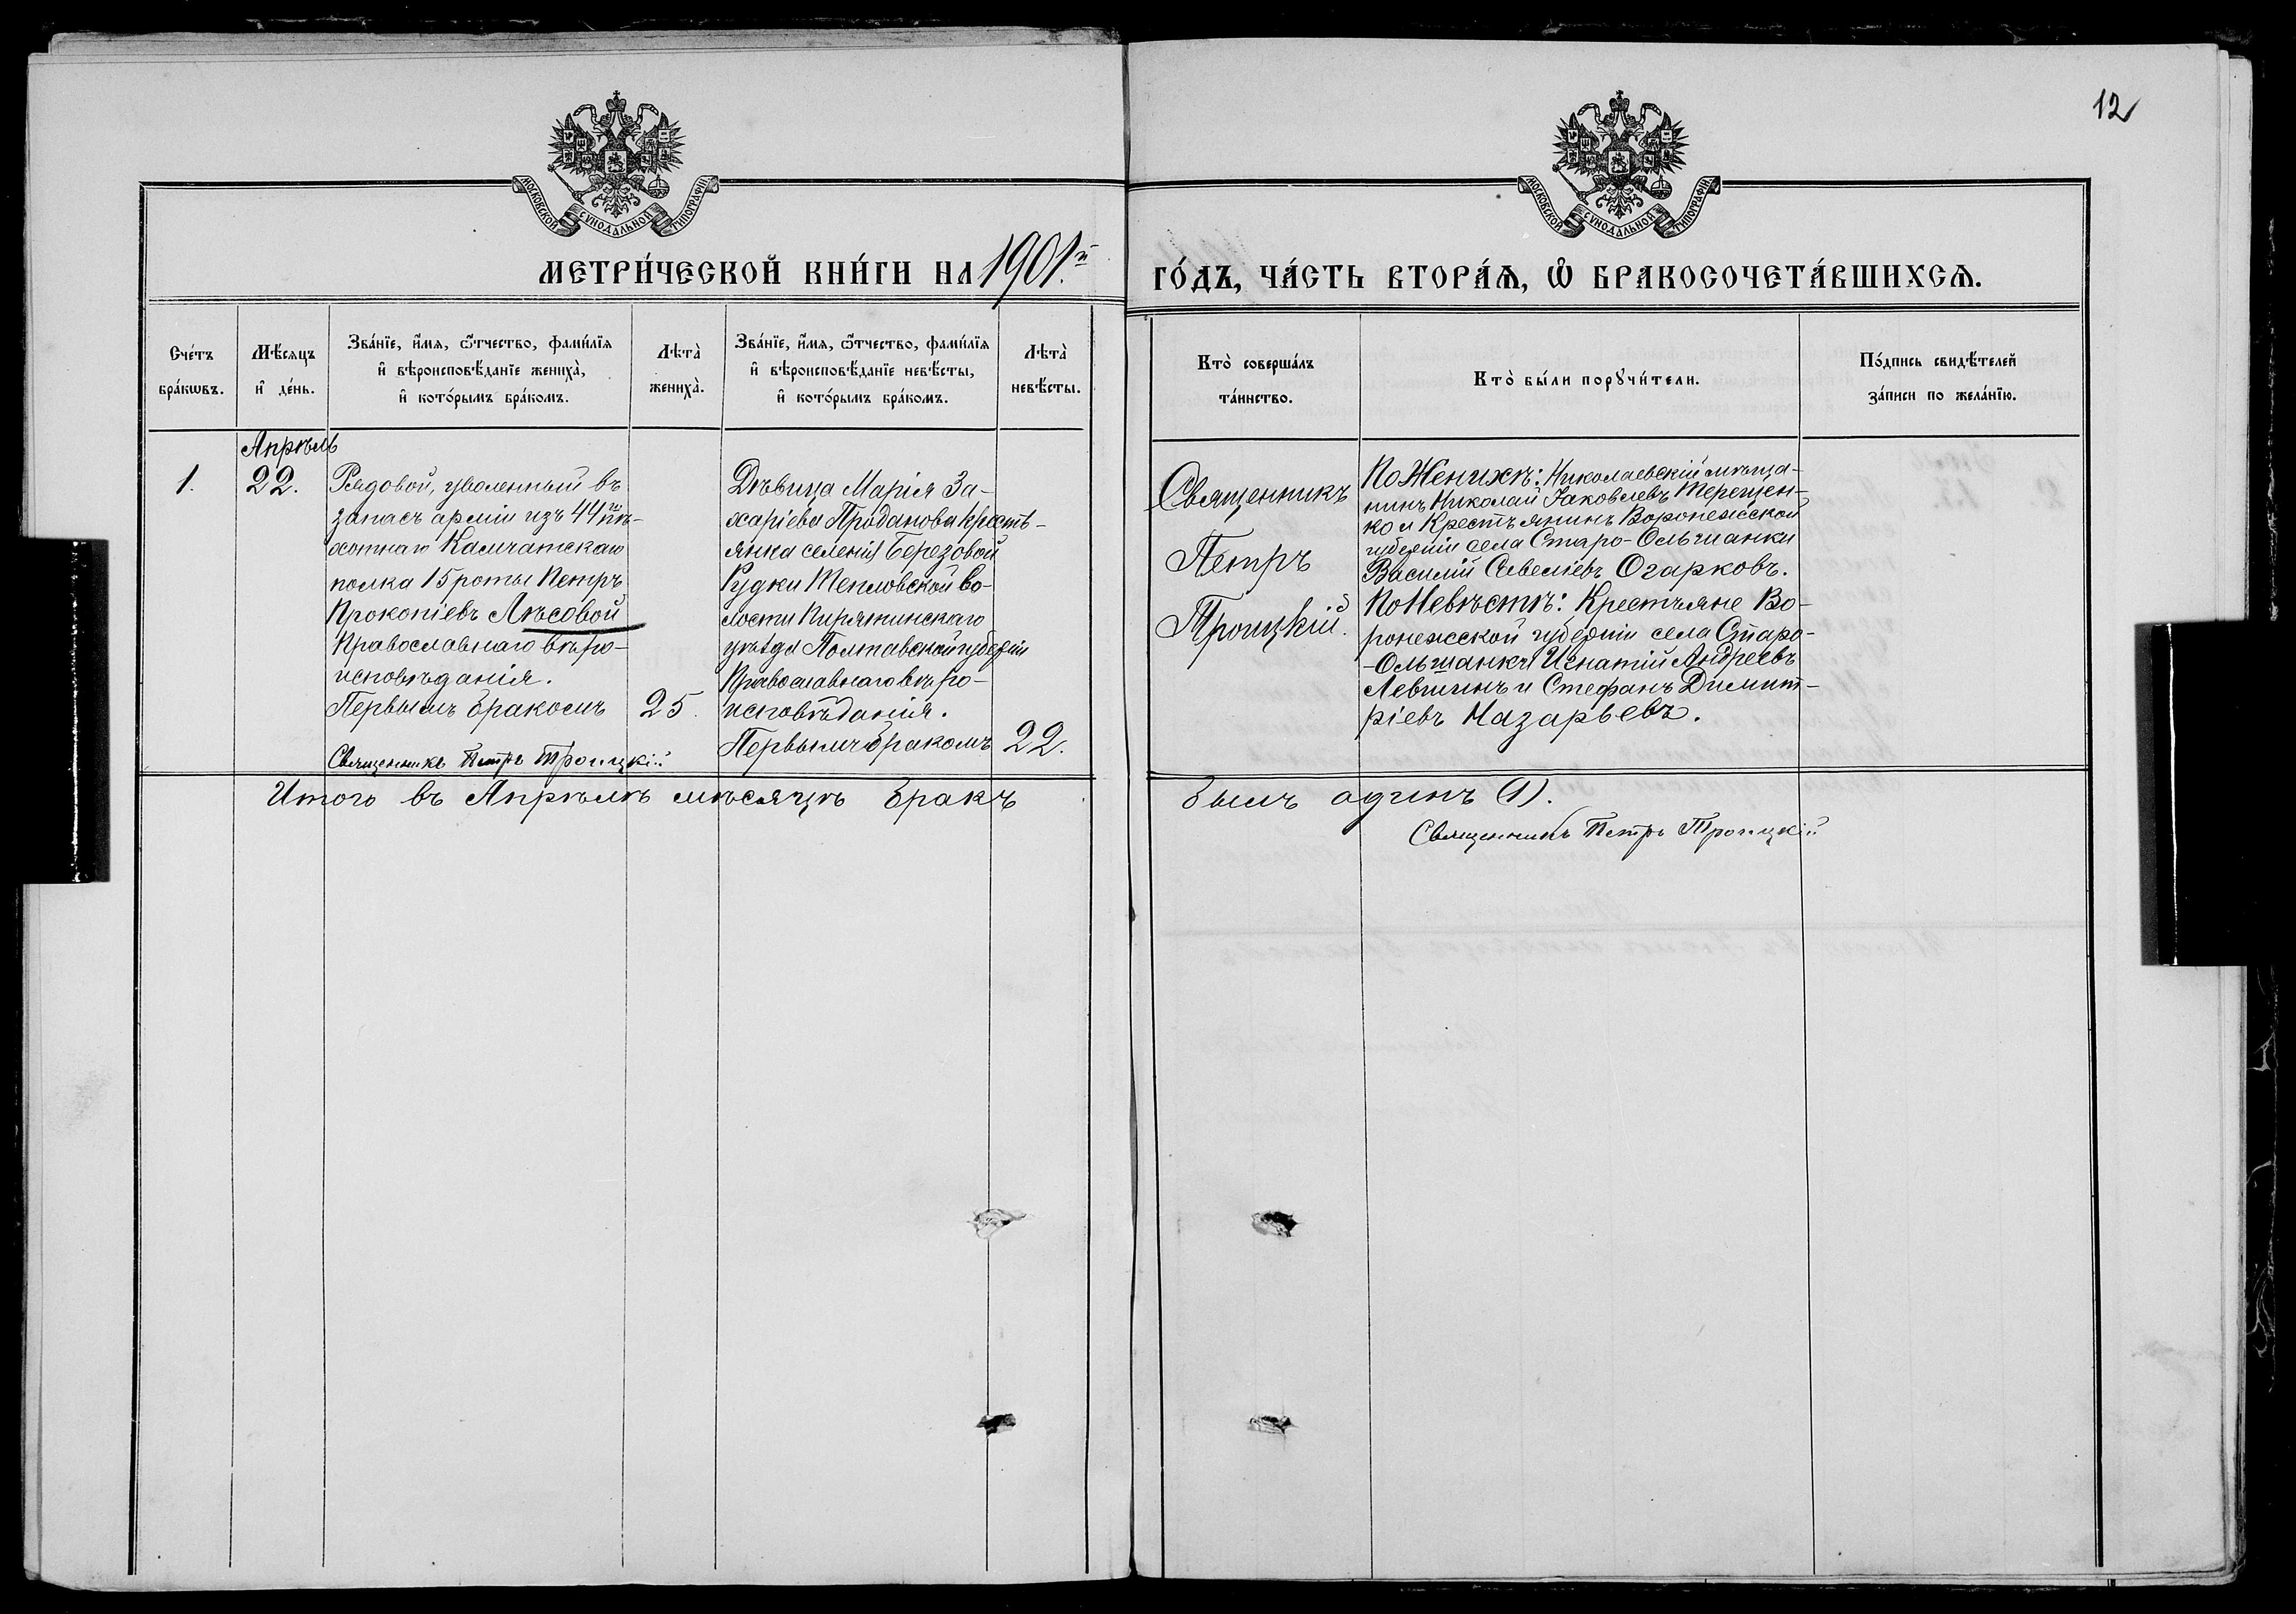 12
МОСКОВСКОЙ СѴНОДАЛЬНОЙ ТИПОГРАФІИ.
МОСКОВСКОЙ СѴНОДАЛЬНОЙ ТИПОГРАФІИ.
МЕТРИ́ЧЕСКОЙ КНИ́ГИ НА 1901.й
ГО́ДЪ, ЧА́СТЬ ВТОРА́Ѧ, Ѡ БРАКОСОЧЕТА́ВШИХСѦ.
Сче́тъ
бра́кѡвъ.
Мѣ́сяцъ
и҆ де́нь.
Зва́нїе, и҆́мѧ, ѻ҆́тчество, фами́лїѧ
и҆ вѣроисповѣ́данїе жениха̀,
и҆ кото́рымъ бра́комъ.
Лѣта̀
жениха̀.
Зва́нїе, и҆́мѧ, ѻ҆́тчество, фами́лїѧ
и҆ вѣроисповѣ́данїе невѣ́сты,
и҆ кото́рымъ бра́комъ.
Лѣта̀
невѣ́сты.
Кто̀ соверша́лъ
та́инство.
Кто̀ бы́ли порꙋчи́тели.
По́дпись свидѣ́телей
за́писи по жела́нїю.
1.
Апрѣль
22.
Рядовой, уволенный въ
запасъ арміи изъ 44го пѣ-
хотнаго Камчатскаго
полка 15 роты Петръ
Прокопіевъ Лѣсовой
Православнаго вѣро-
исповѣданія.
Первымъ бракомъ
Священникъ Петръ Троицкій
25.
Дѣвица Марія За-
харіева Проданова кресть-
янка селенія Березовой
Рудки Тепловской во-
лости Пирятинскаго
уѣзда Полтавской губерніи
Православнаго вѣро-
исповѣданія.
Первымъ бракомъ
22.
Священникъ
Петръ
Троицкій.
По Женихѣ: Николаевскій мѣща-
нинъ Николай Іаковлевъ Терещен-
ко и Крестьянинъ Воронежской
губерніи села Старо-Ольшанки
Василій Савеліевъ Огарковъ.
По Невѣстѣ: Крестьяне Во-
ронежской губерніи села Старо-
-Ольшанки Игнатій Андреевъ
Левшинъ и Стефанъ Димит-
ріевъ Назарьевъ.
Итого въ Апрѣлѣ мѣсяцѣ бракъ
былъ одинъ (1).
Священникъ Петръ Троицкій